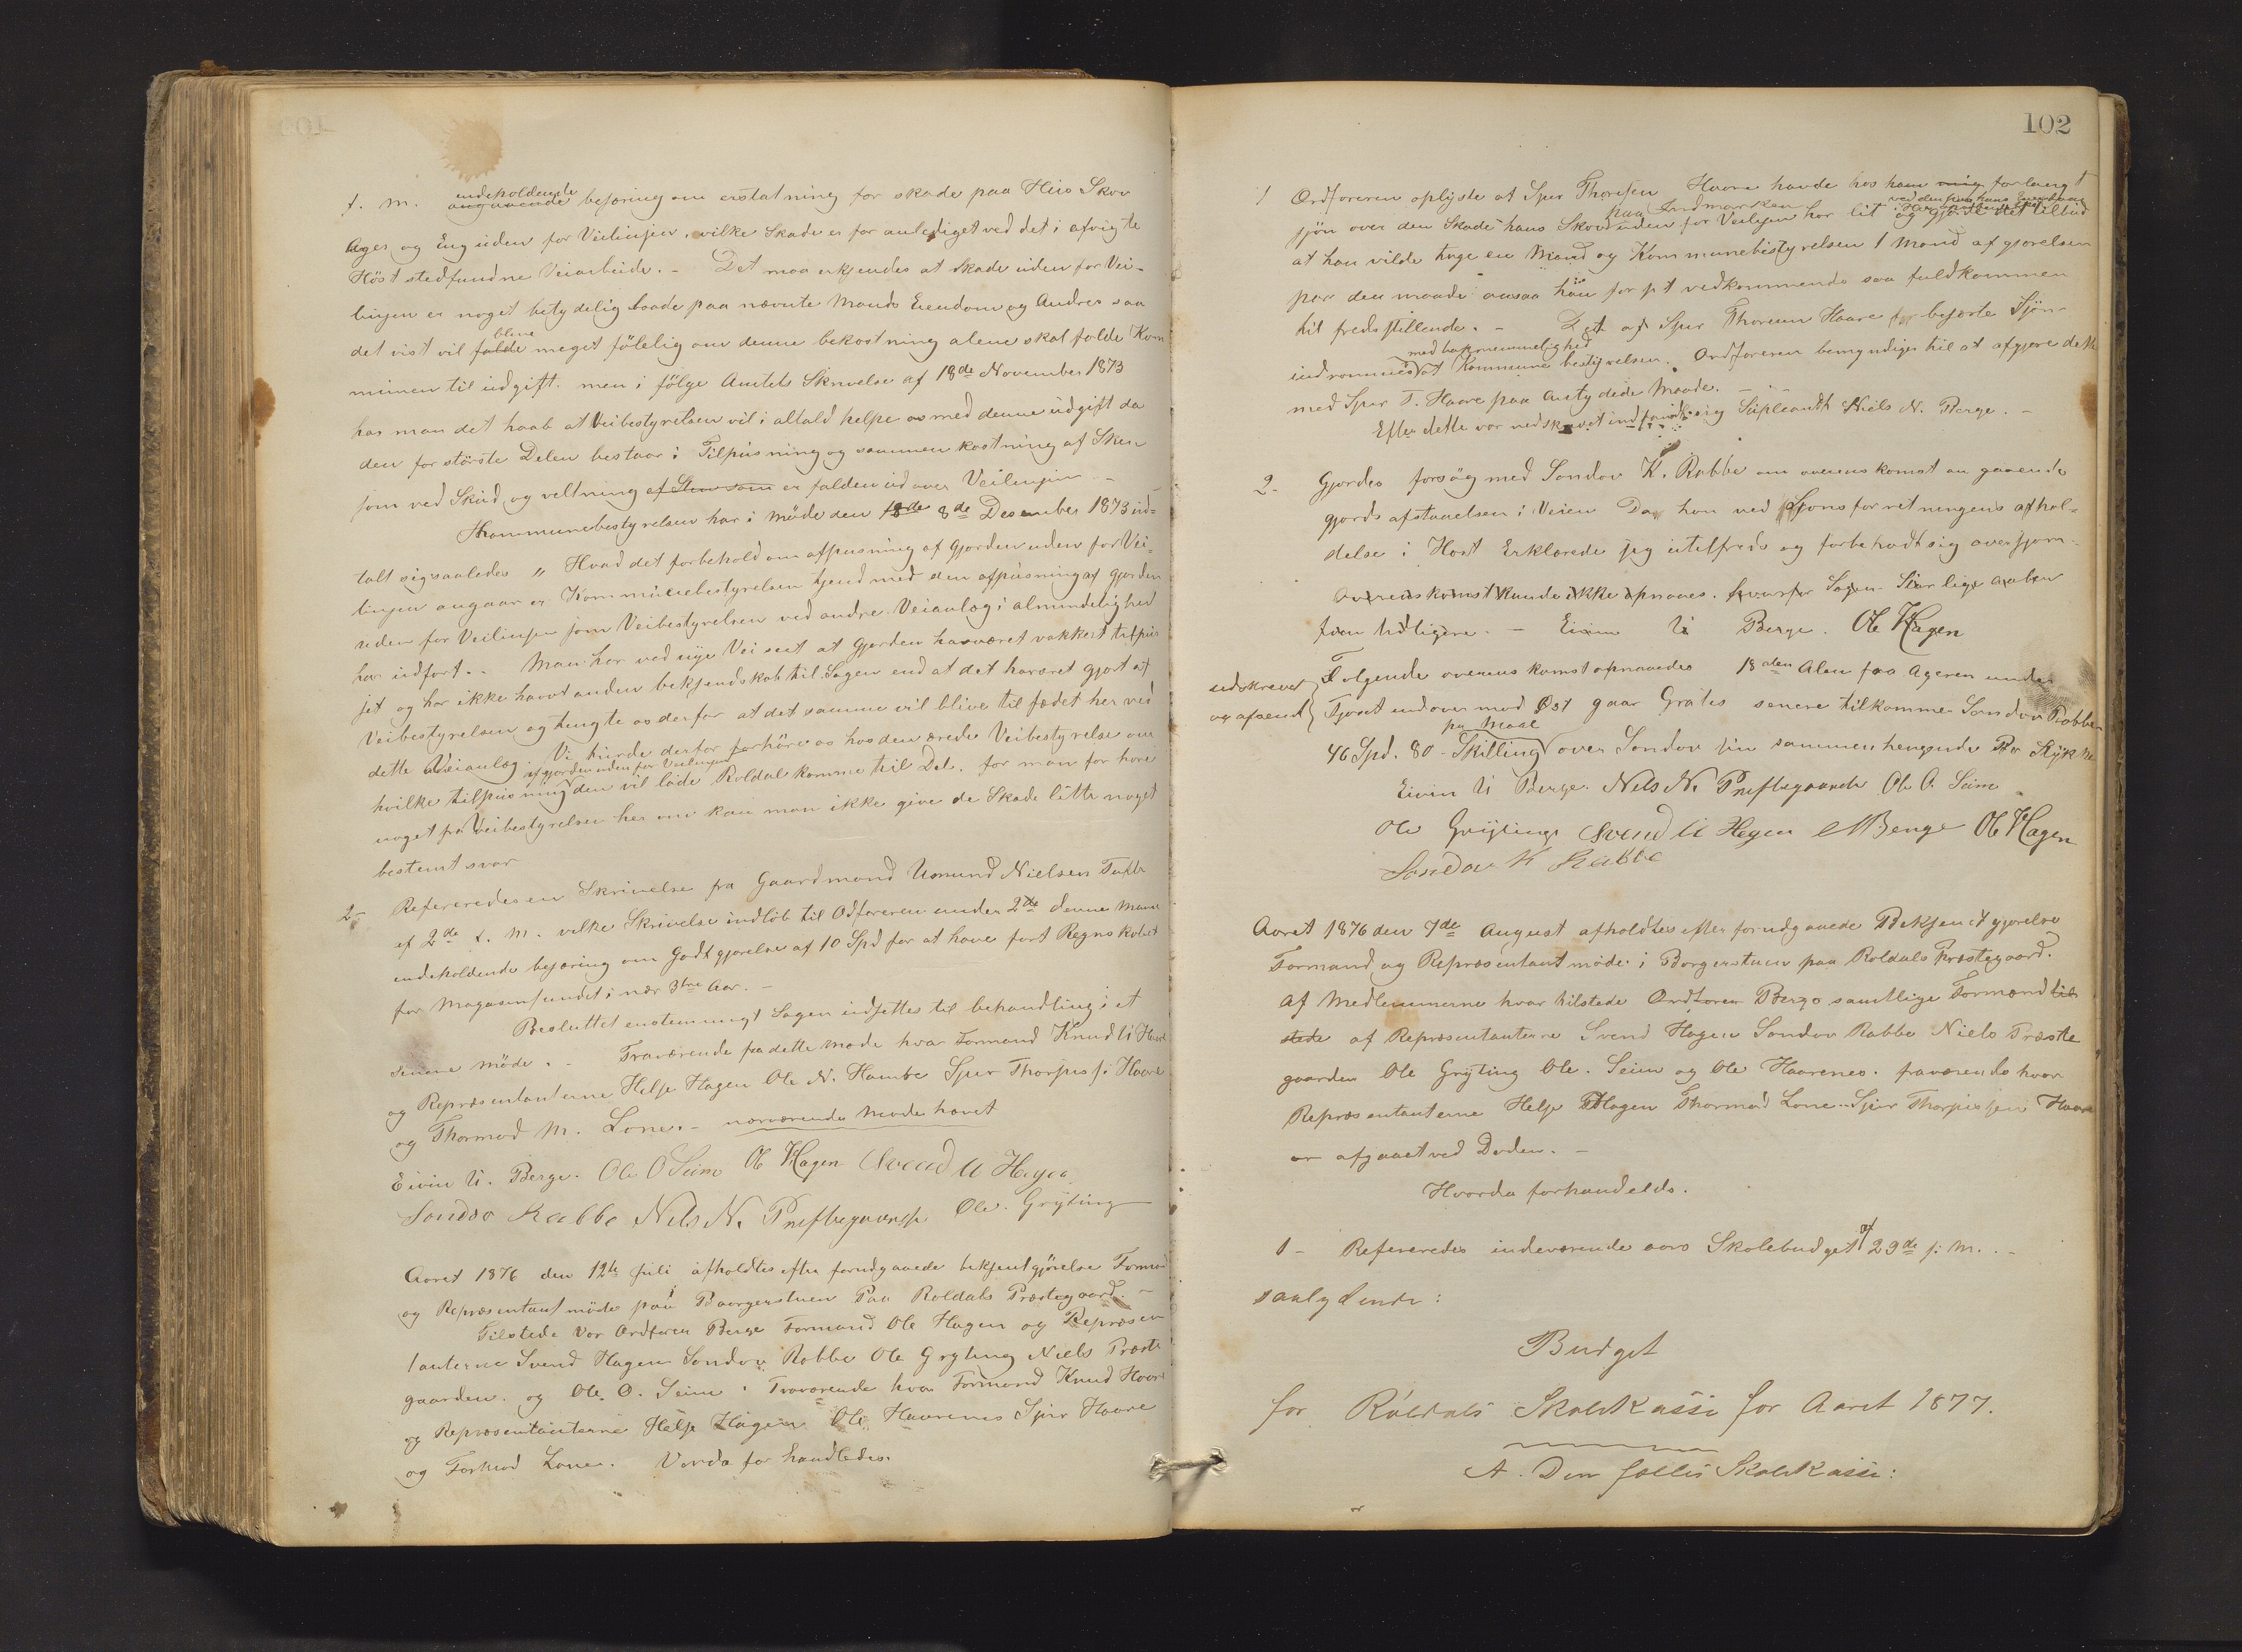 f. M. angaaende indeholdende besæring om erstatning for skade paa Hus Skov
Ager og Eng uden for Veilinjen, vilke Skade er for anlediget ved det i afvigte
Höst stedfundne Veiarbeide. - Det maa erkjendes at Skade uden for Vei-
linjen er noget betydelig baade paa nævnte Mands Eiendom og Andres saa
det vist vil falde blive meget fölelig om denne bekostning alene skal falde Kom
munen til udgift. men i fölge Amtets Skrivelse af 18de November 1873
har man det haab at Veibestyrelsen vil i altald helpe os med denne udgift da
den for störste Delen bestaar i Tilpusning og sammen kastning af Sten
som ved Skud og veltning af Sten som er falden ud over Veilinjen -
Kommunebestyrelsen har i Möde den 18de 8de Desember 1873 ud-
talt sig saaledes „ Hvad det forbehold om afpusning af Gjorden uden for Vei-
linjen angaar er Kommunebestyrelsen kjend med den afpusning af Gjorden
uden for Veilinjen som Veibestyrelsen ved andre Veianlæg i almindelighed
har udfört. - Man har ved nye Vei seet at Gjorden har været vakkert tilpus
set og har ikke havt anden bekjendskab til Sagen end at det har været gjort af
Veibestyrelsen og tengte os derfor at det samme vil blive til fædet her ved
dette Veianlæg. Vi burde derfor forhöre os hos den ærede Veibestyrelse om
hvilke tilpusning af gjorden uden for Veilinjen den vil lade Roldal komme til Del. for man for höre
noget fra Veibestyrelsen her om kan man ikke give de Skade litte noget
bestemt svar
2- Refereredes en Skrivelse fra Gaardmand Asmund Nielsen
af 2de d. M. vilke Skrivelse indlöb til Odföreren under 2de denne Maaned
indeholdende besæring om Godtgjorelse af 10 Spd for at have fört Regnskabet
for Magasinfundet i nær 3tre Aar. -
Besluttet enstemmigt Sagen udsettes til behandling i et
senere möde. - Fraværende fra dette möde hvar Formand Knud
og Repræsentanterne Helje Hagen Ole N. Hambe Sjur Thorjus s. Haare
og Thormod M. Lone. - nærværende Möde hævet
Eivin U. Berge. Ole O Seim Ole Hagen Svend U Hagen
Sondov Rabbe Nils N. Prestegaard Ole. Gryting
Aaret 1876 den 12te Juli afholdtes efter forudgaaede bekjentgjörelse Formand
og Repræsentant möde paa i Baargerstuen Paa Roldals Præstegaard. -
Tilstede Var Ordförer Berge Formand Ole Hagen og Repræsen
tanterne Svend Hagen Sondov Rabbe Ole Gryting Niels Præste
gaarden. og Ole O. Seim. Fraværende hvar Formand Knud Haare
og Repræsentanterne Helje Hagen Ole Haarenes Sjur Haare
og Tormod Lone. Vorda for handledes.
102
1 Ordföreren oplyste at Sjur Thorjsen Haare havde hos ham forlangt
sjön over den Skade hans Skov paa Indmarken uden for Veilinjen har lit og gjorde det tilbud
at han vilde tage en Mand og Kommunebestyrelsen 1 Mand af gjorelsen
paa den maade ansaa han for pt vedkommende saa fuldkommen
tilfredsstillende. - Det af Sjur Thorsen Haare besærte Sjön
indrommes med bestemmelighed at Kommune bestyrelsen. Ordföreren bemyndiges til at afgjere dette
med Sjur T. Haare paa antydede Maade. -
Efter dette var nedskrevet indfandt sig Supleanth Niels N. Berge. -
2- Gjordes forsög med Sondov K. Rabbe om overens komst an gaaende
gjords afstaaelsen i Veien Da han ved Sjonsforretningens afhol-
delse i Höst Erklærede sig utilfreds og forbeholdt sig oversjon-
overenskomst kunde ikke opnaaes. hvorfor Sagen Staar lige aaben
som tidligere. - Eivin U Berge. Ole Hagen
udskrevet og afsendt } Folgende overens komst opnaaedes 18 aten Alen fra Ageren under
Tjoset indover mod Öst gaar Gratis senere tilkommer Sondov Rabbe
46 Spd. 80- Skilling pr Maal over Sondov sin sammenhengende
Eivin U Berge. Nels N. Prestegaarde Ole O. Seim
Ole Gryting Svend U Hagen NBerge Ole Hagen
Sondov K Rabbe
Aaret 1876 den 7de August afholdtes efter forudgaaede Bekjendtgjorelse
Formand og Repræsentant möde i Borgerstuen paa Roldals Præstegaard.
Af Medlemmerne hvar tilstede Ordförer Berge samtlige Formænd til
stede af Repræsentanterne Svend Hagen Sondov Rabbe Niels Præste
gaarden Ole Gryting Ole. Seim og Ole Haarenes. fraværende hvar
Repræsentanterne Helje Hagen Thormod Lone. Sjur Thorjussen Haare
er afgaaet ved Doden. -
Hvorda forhandelds.
1- Refereredes indeværende aars Skolebudget af 29de f. M. -
saalydende:
Budget
for Röldals Skolekasse for Aaret 1877.
A. Den fælles Skolekasse: